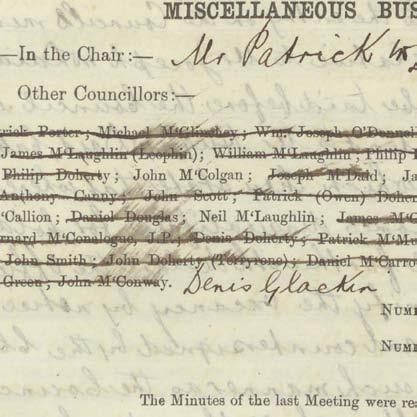 MISCELLANEOUS BUS
—In the Chair:— Mr Patrick
Other Councillors:—
rick Porter; Michael M‘Clinthey; Wm. Joseph O'Donne
James M‘Laughlin (Leophin); William M‘Laughlin; Philip
Philip Doherty; John M‘Colgan; Joseph M‘Daid; Ja
Anthony Canny; John Scott; Patrick (Owen) Doher
‘Callion; Daniel Douglas; Neil M‘Laughlin; James M‘C
ernard M‘Conalogue, J.P.; Denis Doherty; Patrick M‘Me
John Smith; John Doherty (Terryrone); Daniel M‘Carro
Green; John M‘Conway. Denis Glackin
NUM
NUM
The Minutes of the last Meeting were rea